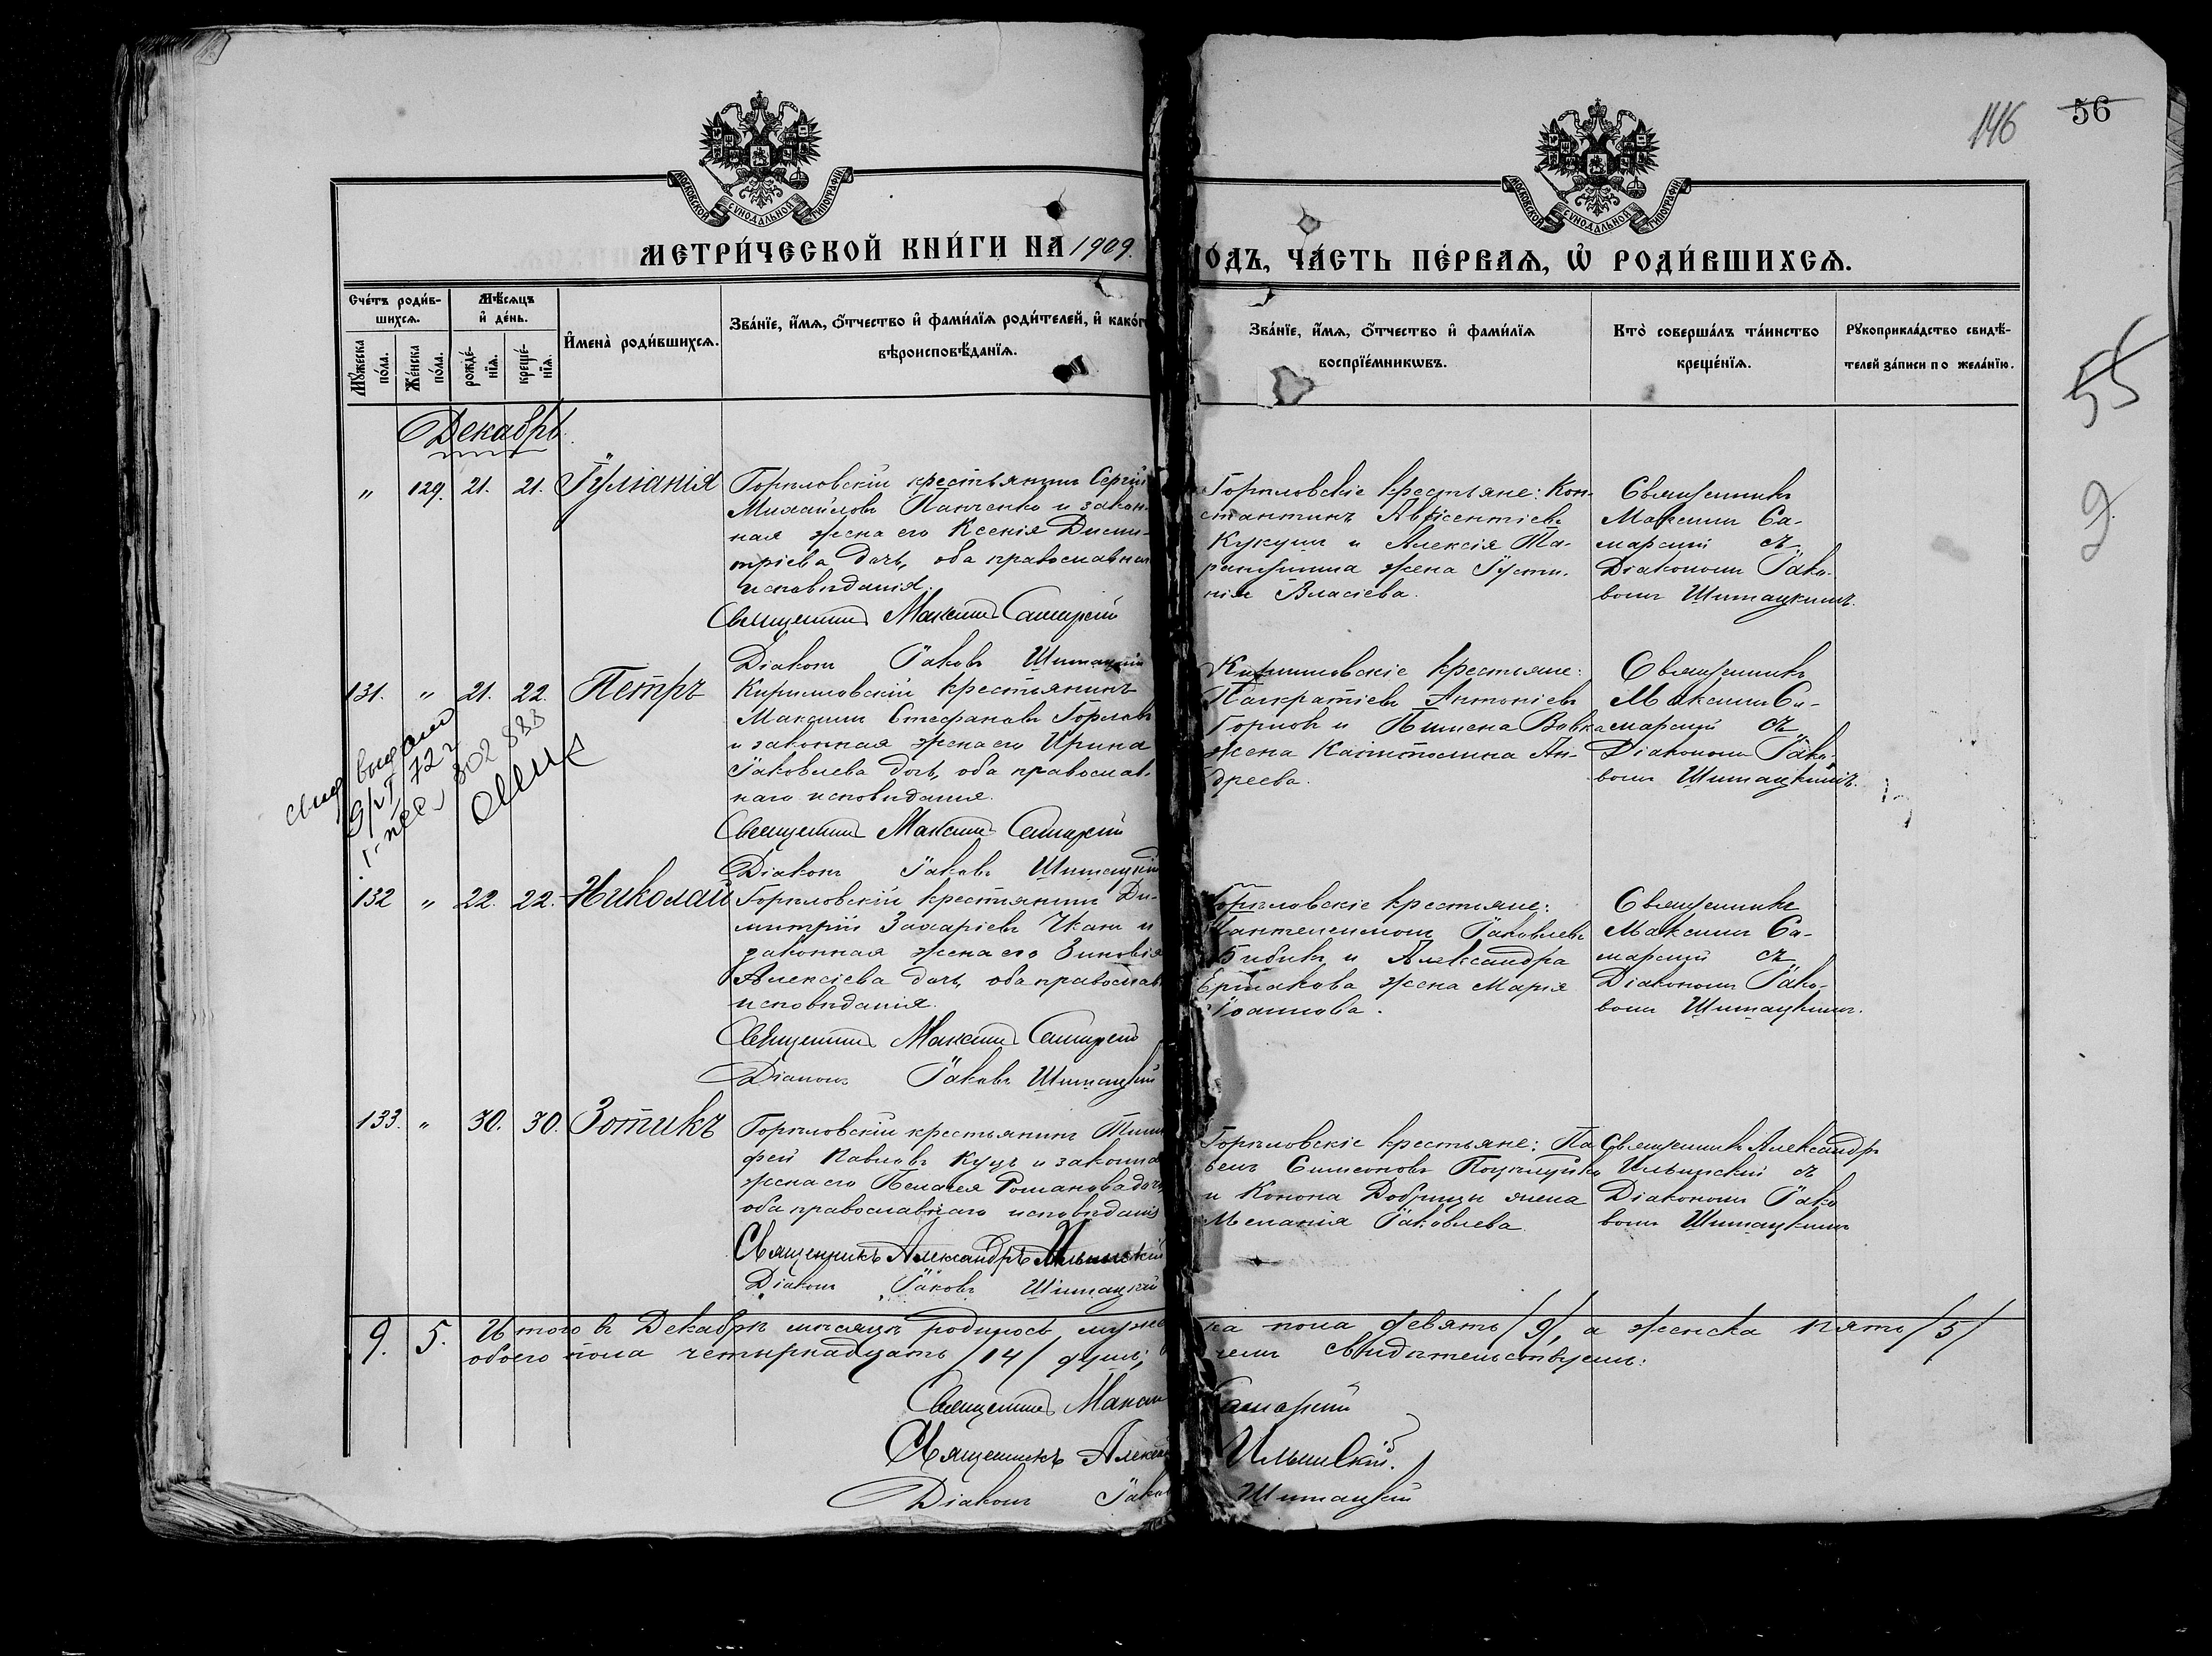 146 56
МОСКОВСКОЙ СѴНОДАЛЬНОЙ ТИПОГРАФІИ
МОСКОВСКОЙ СѴНОДАЛЬНОЙ ТИПОГРАФІИ
МЕТРИ́ЧЕСКОЙ КНИ́ГИ НА 1909.
ОДЪ, ЧА́СТЬ ПЕ́РВАѦ, Ѡ҆ РОДИ́ВШИХСѦ.
Счéтъ роди́в-
шихсѧ.
Мꙋ́жеска по́ла.
Же́нска по́ла.
Мѣ́сѧцъ
и҆ де́нь.
рожде́нїѧ.
креще́нїѧ.
И҆мена̀ роди́вшихсѧ.
Зва́нїе, и҆́мѧ, ѻ҆́тчество и҆ фами́лїѧ роди́телей, и҆ како́г
вѣроисповѣ́данїѧ.
Зва́нїе, и҆́мѧ, ѻ҆́тчество и҆ фами́лїѧ
воспрїе́мникѡвъ.
Кто̀ соверша́лъ та́инство
креще́нїѧ.
Рꙋкоприкла́дство свидѣ́-
телей за́писи по жела́нїю.
55
2
Декабрь.
" 129. 21. 21. Іуліанія
Горѣловскій крестьянинъ Сергій
Михайловъ Панченко и закон-
ная жена его Ксенія Дими-
тріева дочь, оба православнаго
исповѣданія.
Священникъ Максимъ Самарскій
Діаконъ Іаковъ Шитацкій
Горѣловскіе крестьяне: Кон-
стантинъ Авксентіевъ
Кукуш и Алексія Та-
жена Густи-
нія Власіева.
Священникъ
Максимъ Са-
марскій съ
Діакономъ Іако-
вомъ Шитацкимъ.
131. " 21. 22. Петръ
Кирилловскій крестьянинъ
Максимъ Стефановъ Горловъ
и законная жена его Ирина
Іаковлева дочь, оба православ-
наго исповѣданія.
Священникъ Максимъ Самарскій
Діаконъ Іаковъ Шитацкій
Кирилловскіе крестьяне:
Панкратіевъ Антоніевъ
Горловъ и Пимена Вовка
жена Капитолина Ан-
дреева.
Священникъ
Максимъ Са-
марскій съ
Діакономъ Іако-
вомъ Шитацкимъ.
выдано
72 г
802 833
132 " 22. 22. Николай
Горѣловскій крестьянинъ Ди-
митрій Захаріевъ Чканъ и
законная жена его Зиновія
Алексіева дочь, оба православ
исповѣданія.
Священникъ Максимъ Самарскій
Діаконъ Іаковъ Шитацкій
Горѣловскіе крестьяне:
Пантелеимонъ Іаковлевъ
Бибикъ и Александра
Ермакова жена Марія
Іоаннова.
Священникъ
Максимъ Са-
марскій съ
Діакономъ Іако-
вомъ Шитацкимъ.
133. " 30. 30. Зотикъ
Горѣловскій крестьянинъ Тимо
фей Павловъ Куцъ и законна
жена его Пелагея Романова дочь,
оба православнаго исповѣданія
Священникъ Александръ Ильинскій
Діаконъ Іаковъ Шитацкій
Горѣловскіе крестьяне: Па
велъ Симеоновъ
и Конона Добрицы жена
Меланія Іаковлева
Священникъ Александръ
Ильинскій съ
Діакономъ Іако
вомъ Шитацкимъ
9. 5. Итого въ Декабрѣ мѣсяцѣ родилось муже ска пола девять /9/, а женска пять /5/
обоего пола четырнадцать /14/ душъ; чемъ свидѣтельствуемъ:
Священникъ Макси Самарскій
Священникъ Алекса Ильинскій.
Діаконъ Іаков Шитацкій